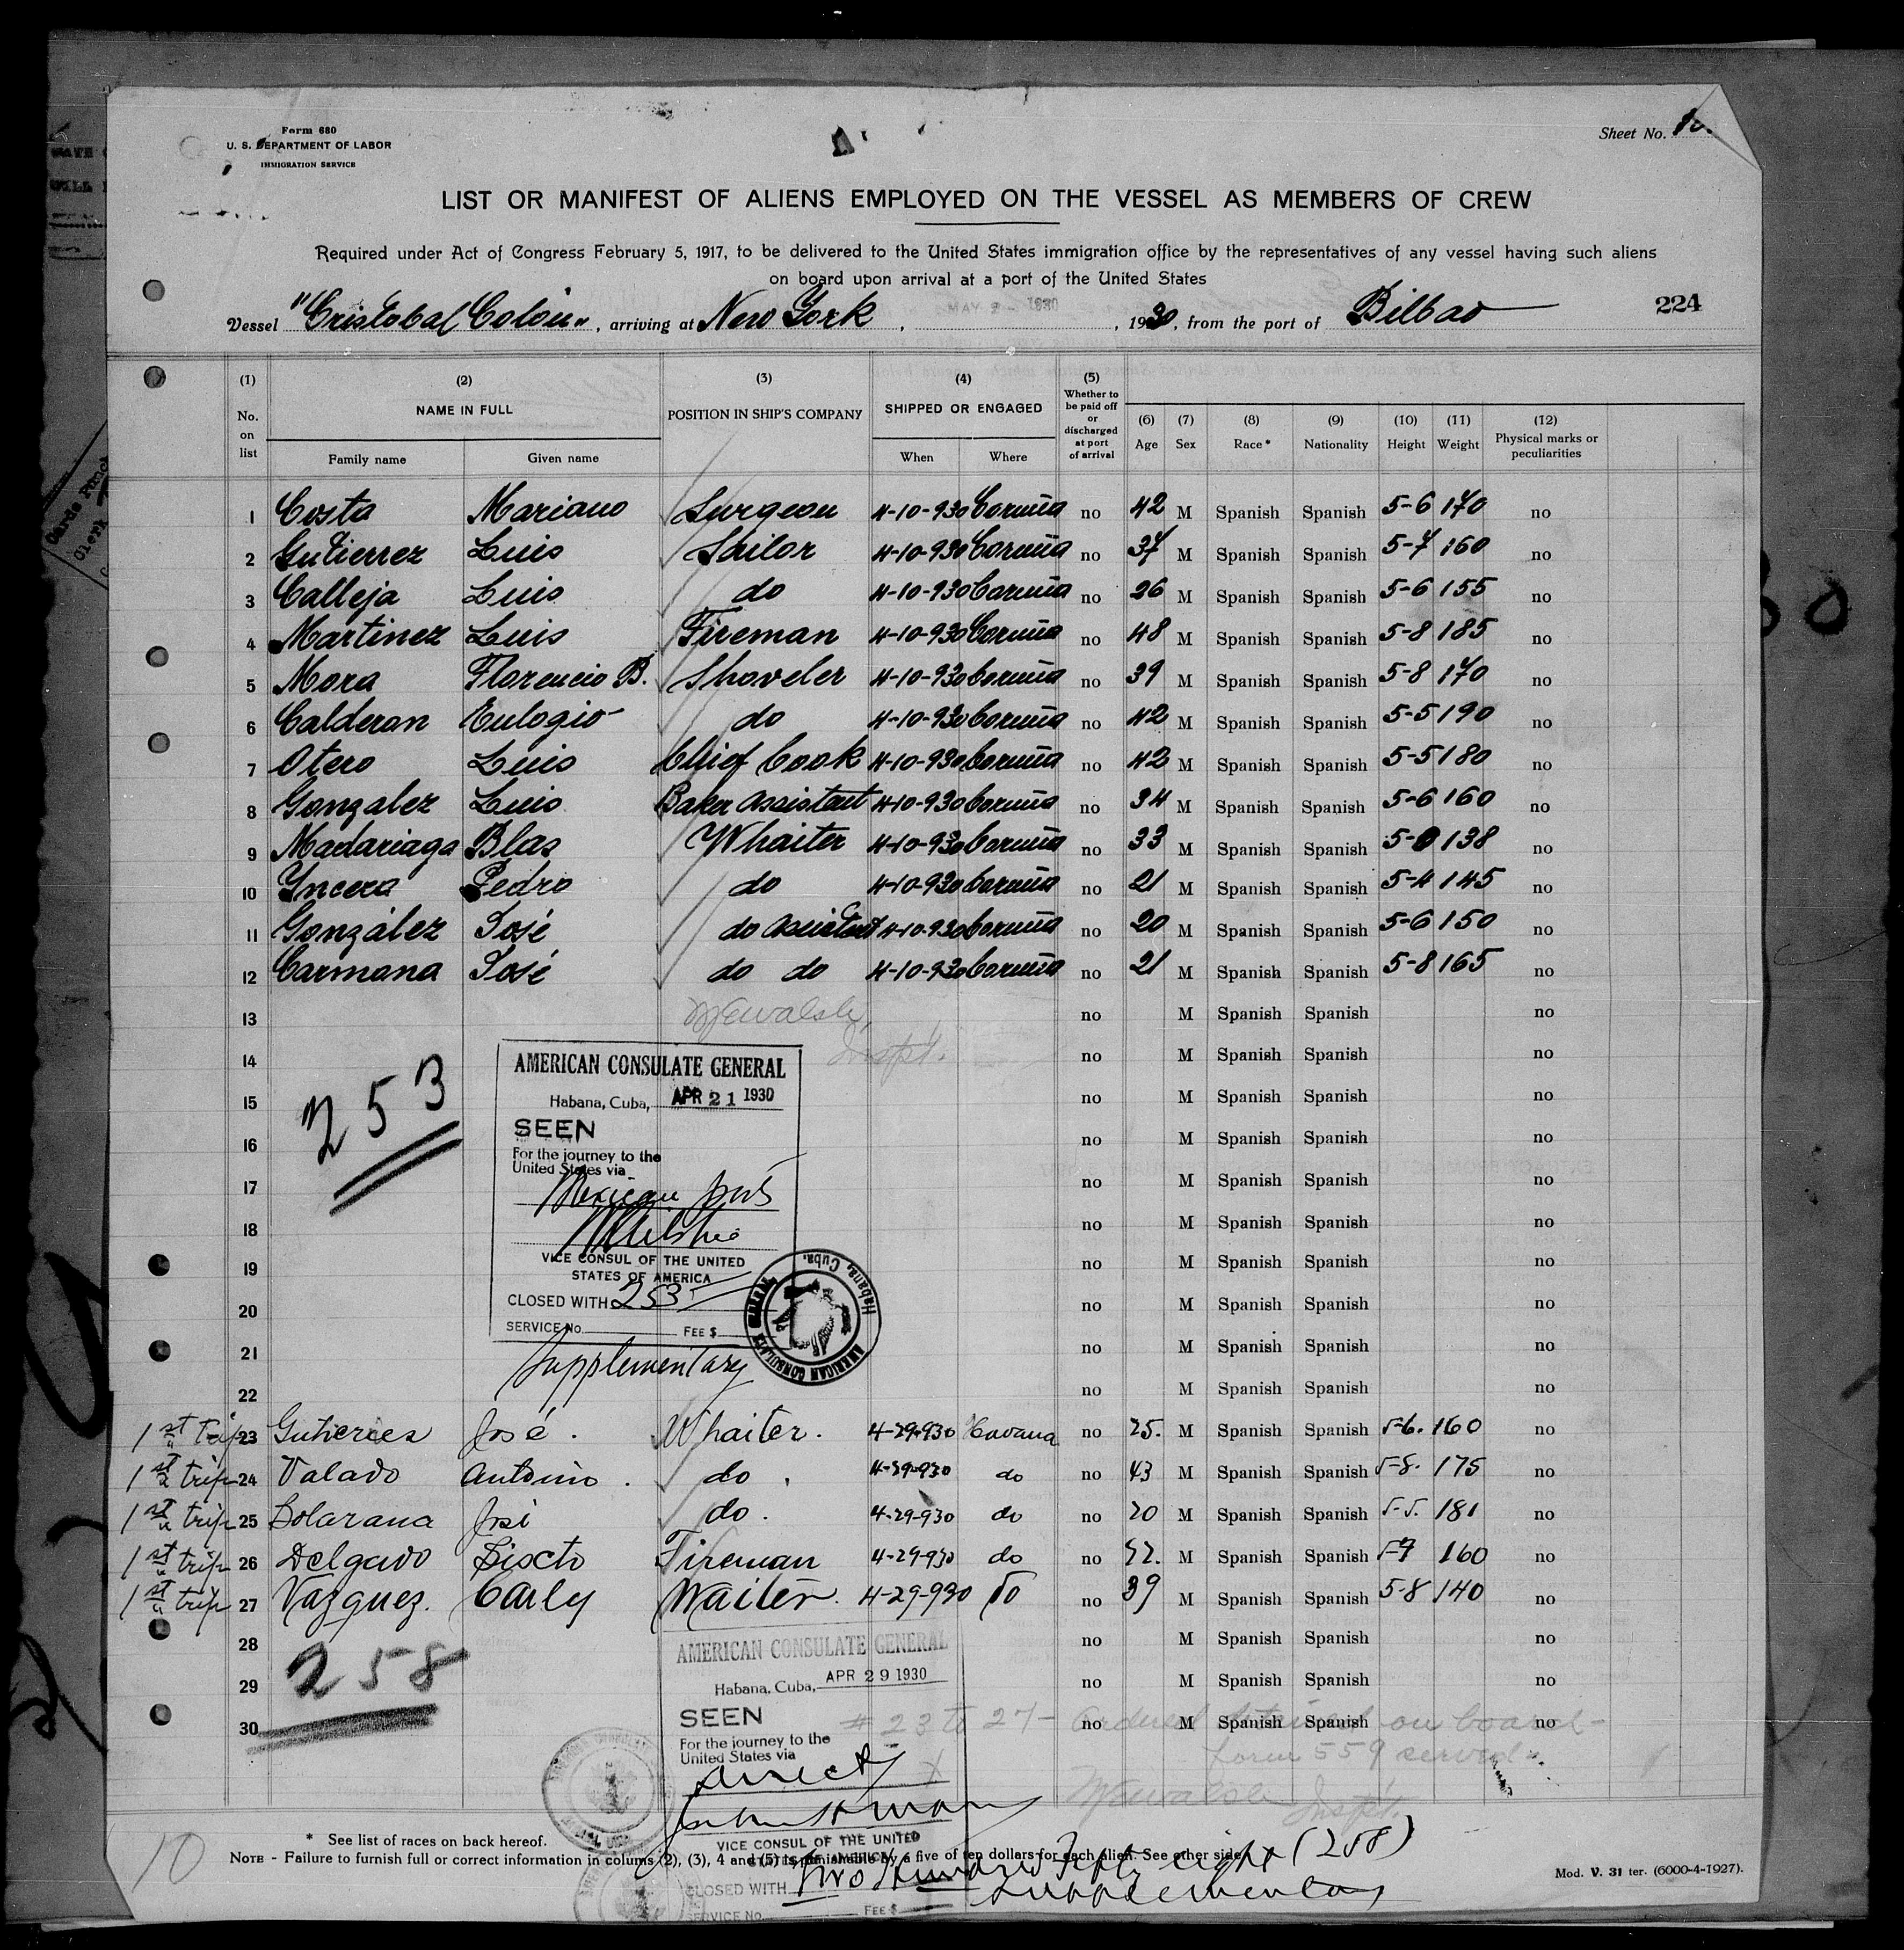 Form 680
U. S. DEPARTMENT OF LABOR
IMMIGRATION SERVICE
Sheet No. 10.
LIST OR MANIFEST OF ALIENS EMPLOYED ON THE VESSEL AS MEMBERS OF CREW
Required under Act of Congress February 5, 1917, to be delivered to the United States immigration office by the representatives of any vessel having such aliens
on board upon arrival at a port of the United States
Vessel "Cristobal Colón", arriving at New York, MAY 2 - 1930, 1930, from the port of Bilbao 224
(1) (2) (3) (4) (5) (6) (7) (8) (9) (10) (11) (12)
No. on list NAME IN FULL POSITION IN SHIP'S COMPANY SHIPPED OR ENGAGED Whether to be paid off or discharged at port of arrival Age Sex Race * Nationality Height Weight Physical marks or peculiarities
Family name Given name When Where
1 Costa Mariano Surgeon 4-10-930 Coruña no 42 M Spanish Spanish 5-6 170 no
2 Gutierrez Luis Sailor 4-10-930 Coruña no 37 M Spanish Spanish 5-7 160 no
3 Calleja Luis do 4-10-930 Coruña no 26 M Spanish Spanish 5-6 155 no
4 Martinez Luis Fireman 4-10-930 Coruña no 48 M Spanish Spanish 5-8 185 no
5 Mora Florencio B. Shoveler 4-10-930 Coruña no 39 M Spanish Spanish 5-8 170 no
6 Calderon Eulogio do 4-10-930 Coruña no 42 M Spanish Spanish 5-5 190 no
7 Otero Luis Chief Cook 4-10-930 Coruña no 42 M Spanish Spanish 5-5 180 no
8 Gonzalez Luis Baker assistant 4-10-930 Coruña no 34 M Spanish Spanish 5-6 160 no
9 Madariaga Blas Whaiter 4-10-930 Coruña no 33 M Spanish Spanish 5-0 138 no
10 Yncera Pedro do 4-10-930 Coruña no 21 M Spanish Spanish 5-4 145 no
11 González José do assistant 4-10-930 Coruña no 20 M Spanish Spanish 5-6 150 no
12 Carmona José do do 4-10-930 Coruña no 21 M Spanish Spanish 5-8 165 no
13 no M Spanish Spanish no
14 Inspt. no M Spanish Spanish no
15 no M Spanish Spanish no
16 no M Spanish Spanish no
17 no M Spanish Spanish no
18 no M Spanish Spanish no
19 no M Spanish Spanish no
20 no M Spanish Spanish no
21 no M Spanish Spanish no
22 no M Spanish Spanish no
253
AMERICAN CONSULATE GENERAL
Habana, Cuba, APR 21 1930
SEEN
For the journey to the
United States via
Mexican ports
VICE CONSUL OF THE UNITED
STATES OF AMERICA
CLOSED WITH 253
SERVICE No. FEE $
AMERICAN CONSULATE GENERAL Habana, Cuba.
Supplementary
1st trip 23 Gutierres José. Whaiter. 4-29-930 Havana no 25. M Spanish Spanish 5-6. 160 no
1st trip 24 Valado Antonio. do. 4-29-930 do no 43 M Spanish Spanish 5-8. 175 no
1st trip 25 Solarana José do. 4-29-930 do no 20 M Spanish Spanish 5-5. 181 no
1st trip 26 Delgado Sixcto Fireman 4-29-930 do no 52. M Spanish Spanish 5-7 160 no
1st trip 27 Vazquez. Carly Waiter. 4-29-930 do no 39 M Spanish Spanish 5-8 140 no
28 no M Spanish Spanish no
29 no M Spanish Spanish no
30 no M Spanish Spanish no
258
AMERICAN CONSULATE GENERAL
Habana, Cuba, APR 29 1930
SEEN
For the journey to the
United States via
Direct
# 23 to 27 - ordered detained on board -
form 559 served
Inspt.
VICE CONSUL OF THE UNITED
STATES OF AMERICA
CLOSED WITH Two Hundred Fifty eight (258)
supplementary
SERVICE No. FEE $
10
* See list of races on back hereof.
NOTE - Failure to furnish full or correct information in colums (2), (3), 4 and (5) is punishable by a five of ten dollars for each alien. See other side.
Mod. V. 31 ter. (6000-4-1927).